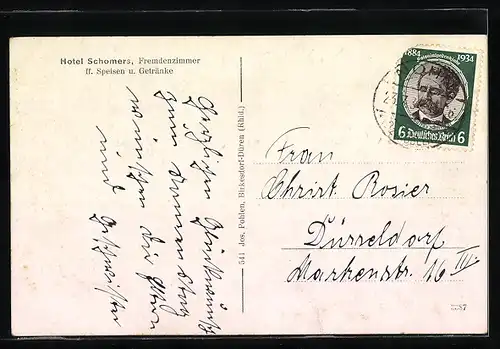 Hotel Schomers, Fremdenzimmer
ff. Speisen u. Getränke
Herzlichen Glückwunsch
zum Namenstag
wünschen die Eltern
und Geschwister
541 Jos. Pohlen, Birkesdorf-Düren (Rhld.)
1884 1934
6 Deutsches Reich 6
Frau
Christ. Rosier
Düsseldorf
Markenstr. 16 III.